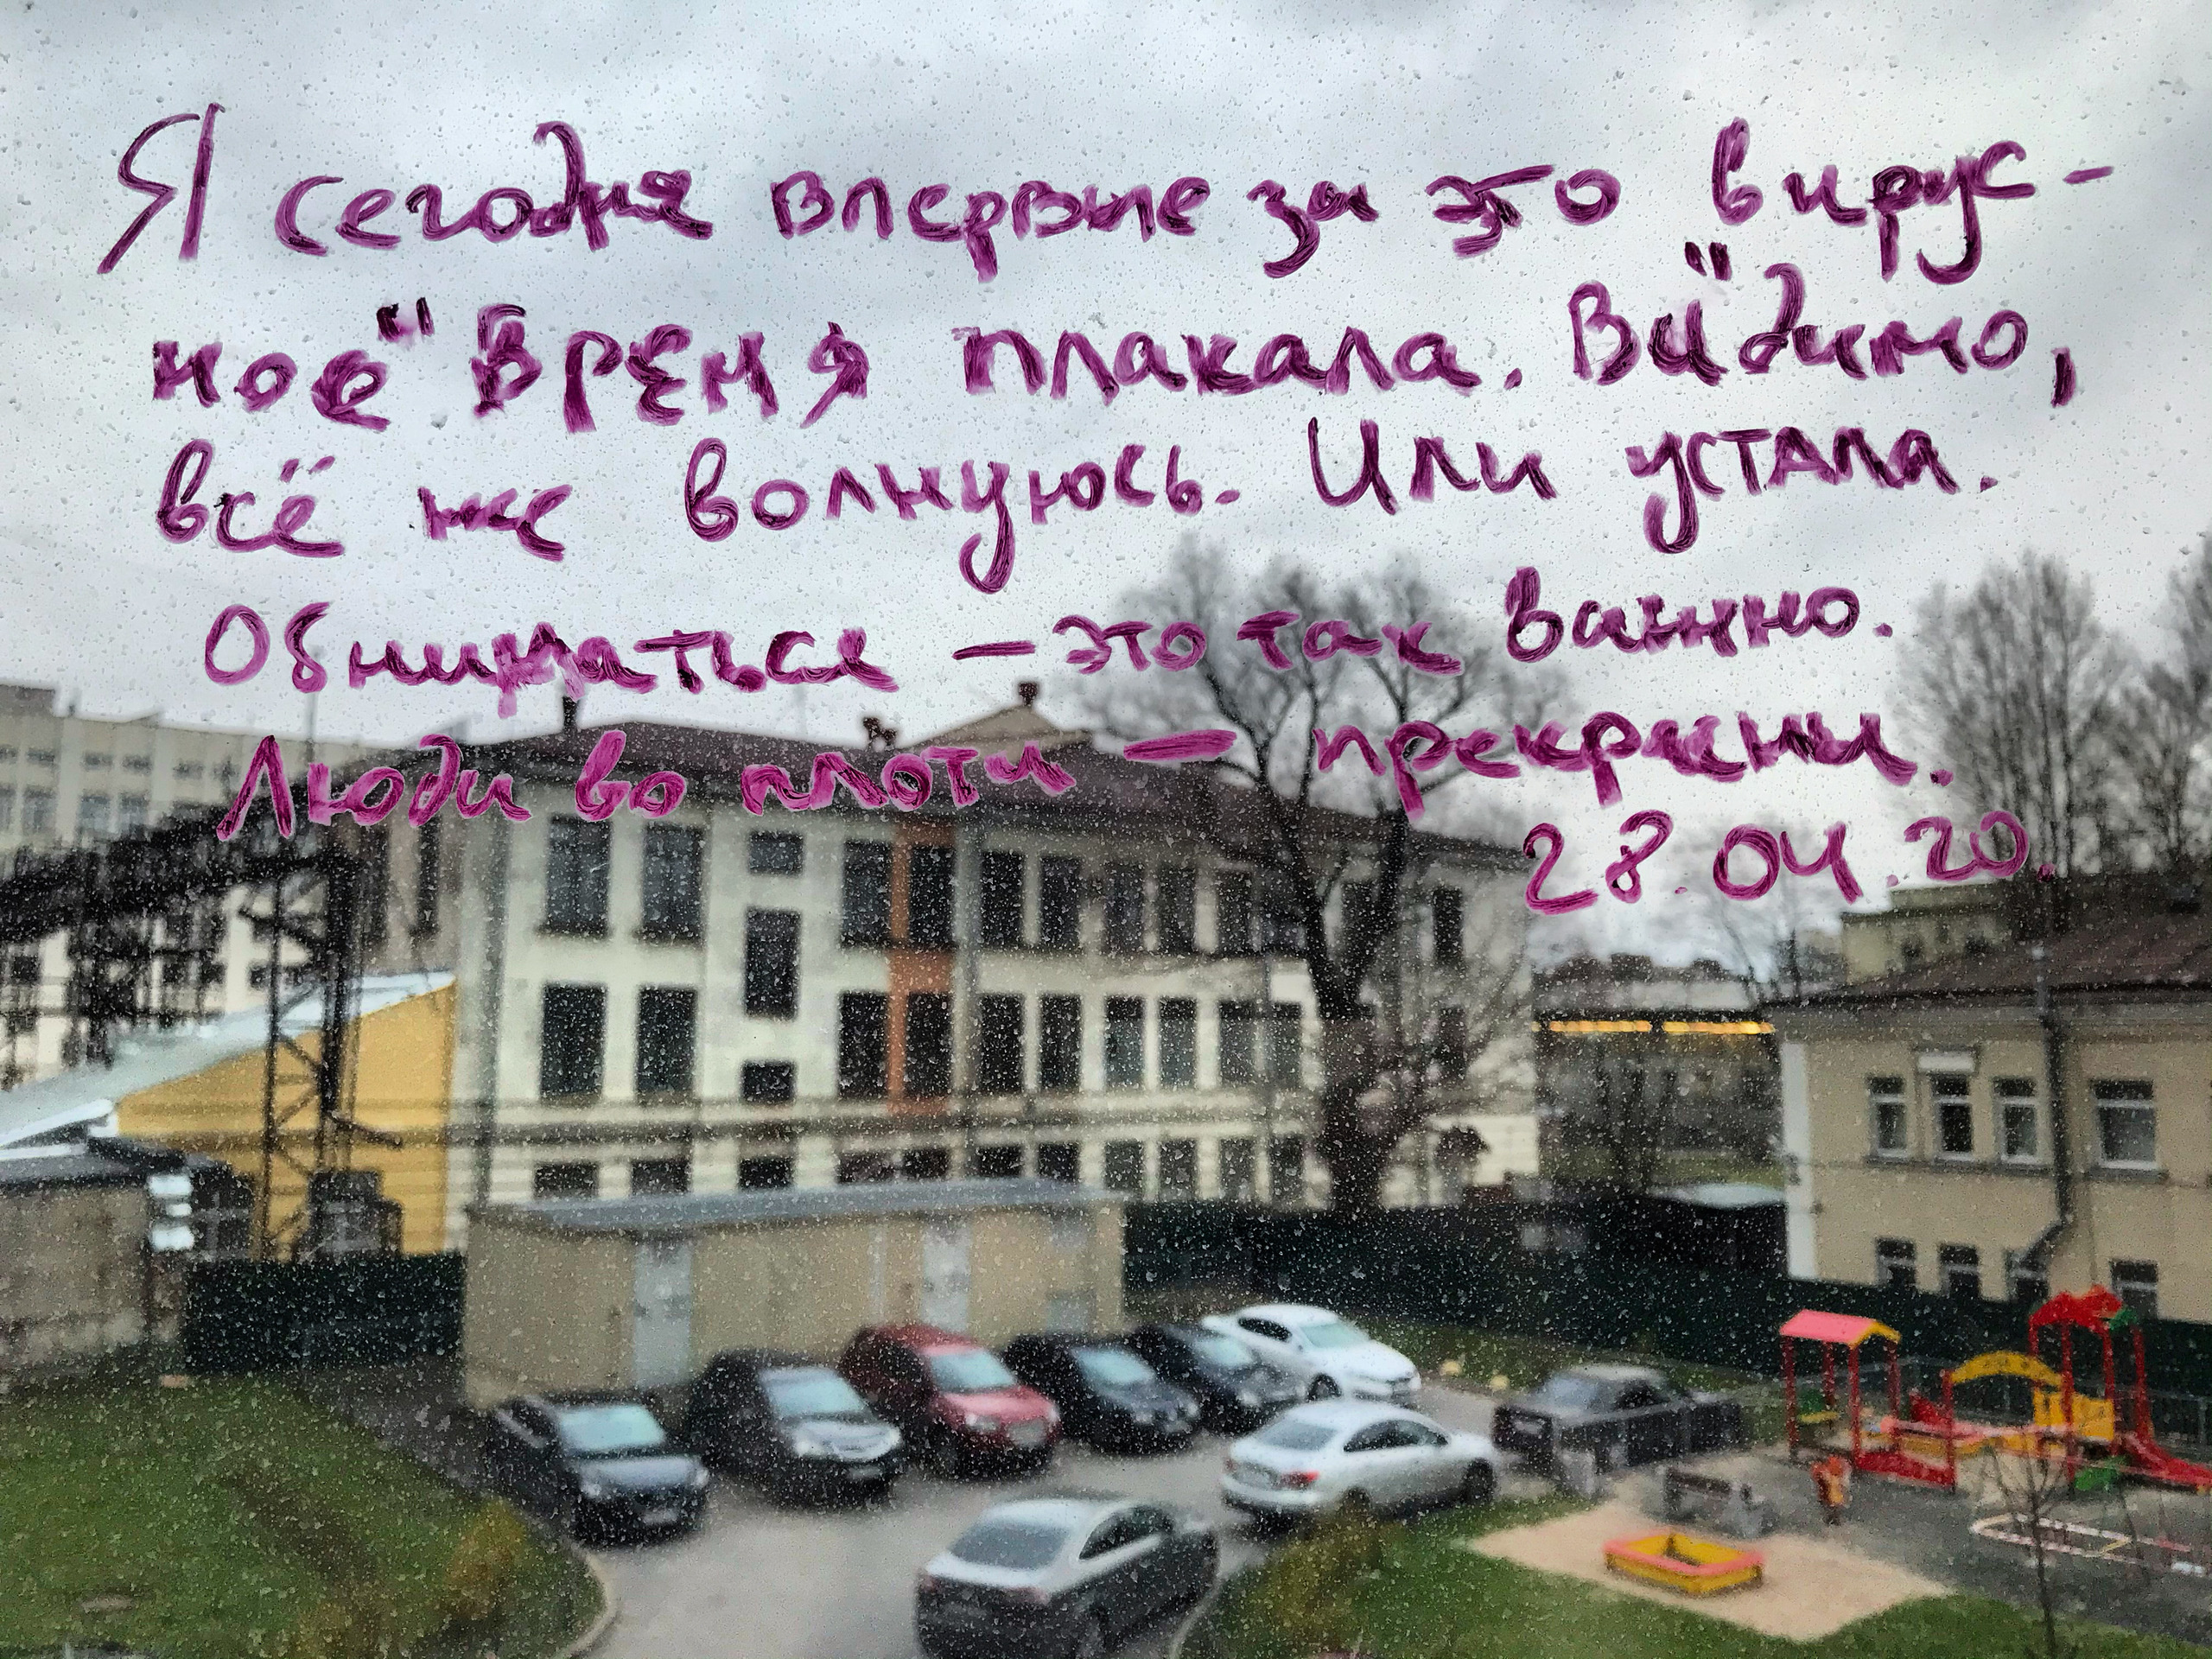 Я сегодня впервые за это вирус-
ное" время плакала. Ви"димо,
всё же волнуюсь. Или устала.
Обниматься — это так важно.
Люди во плоти — прекрасны.
28.04.20.